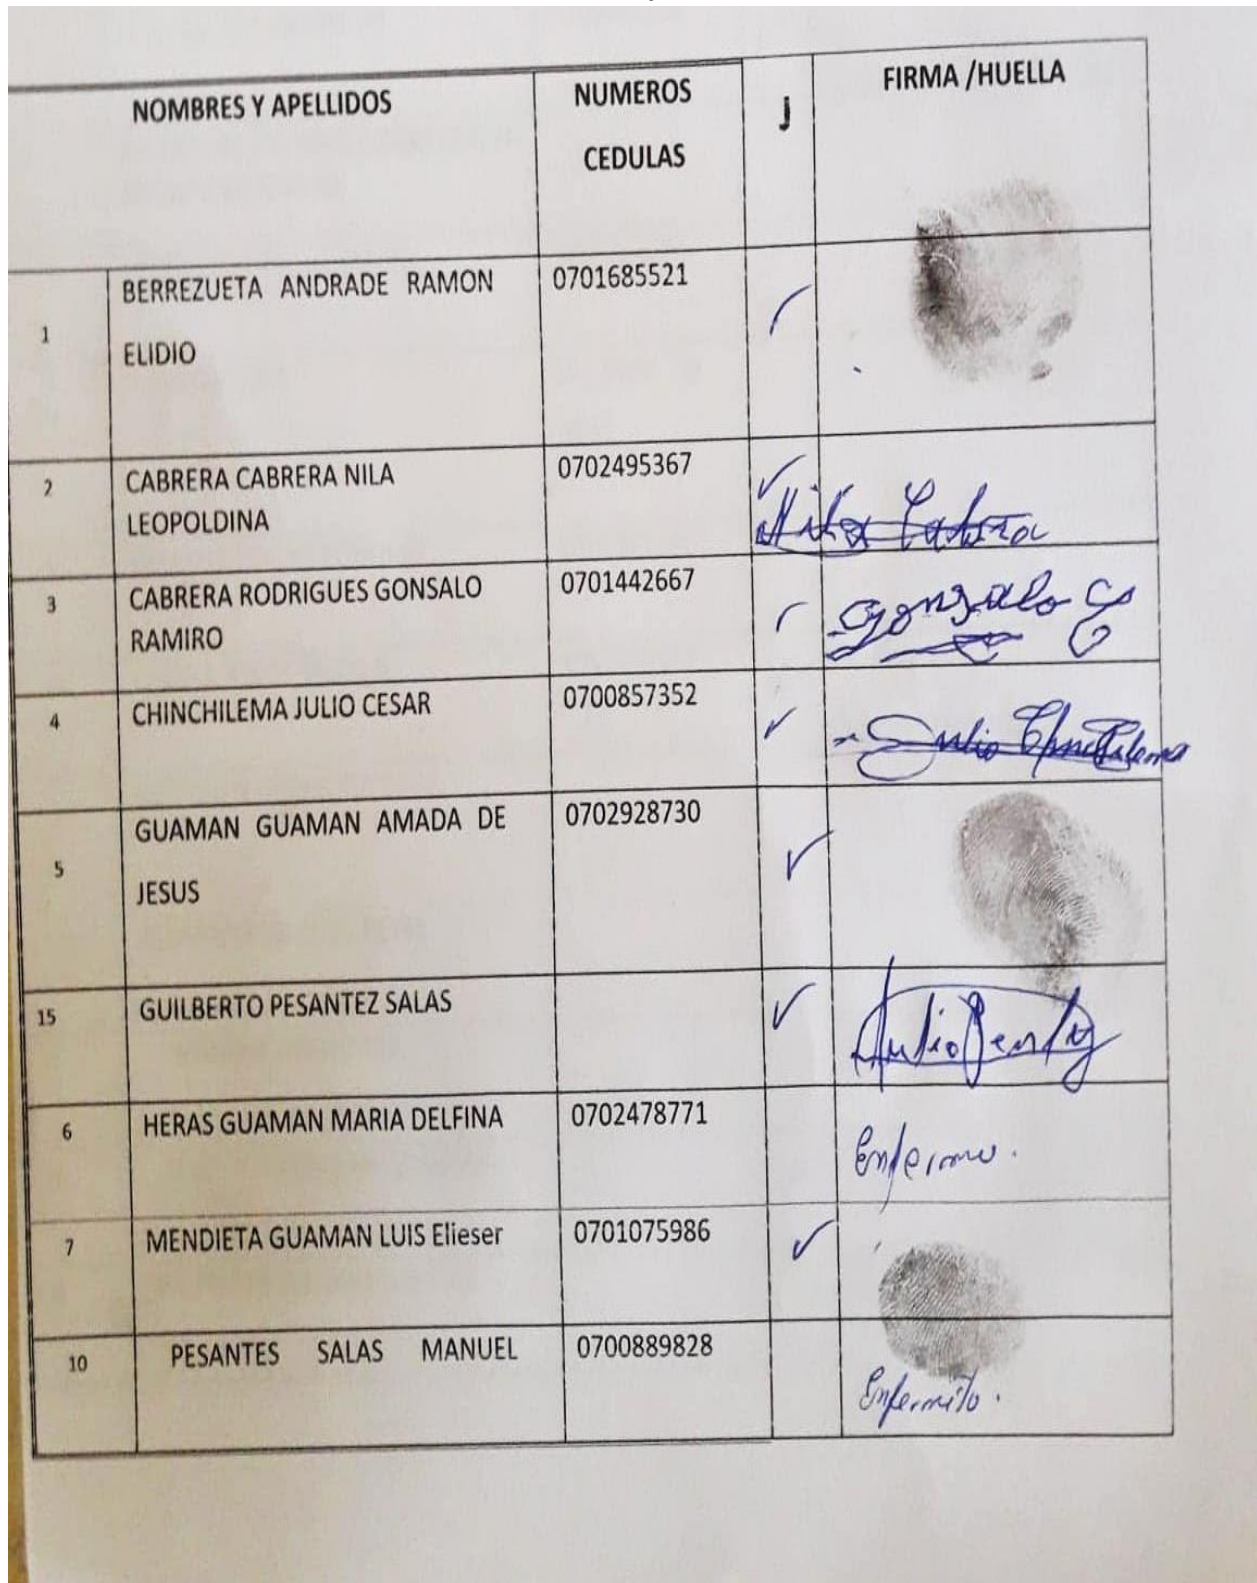 NOMBRES Y APELLIDOS NUMEROS CEDULAS J FIRMA /HUELLA
1 BERREZUETA ANDRADE RAMON 0701685521
ELIDIO
2 CABRERA CABRERA NILA 0702495367
LEOPOLDINA
Nila Cabrera
3 CABRERA RODRIGUES GONSALO 0701442667
RAMIRO
Gonzalo C
4 CHINCHILEMA JULIO CESAR 0700857352
Julio Chinchilema
5 GUAMAN GUAMAN AMADA DE 0702928730
JESUS
15 GUILBERTO PESANTEZ SALAS
6 HERAS GUAMAN MARIA DELFINA 0702478771
Enfermo.
7 MENDIETA GUAMAN LUIS Elieser 0701075986
10 PESANTES SALAS MANUEL 0700889828
Enfermito.